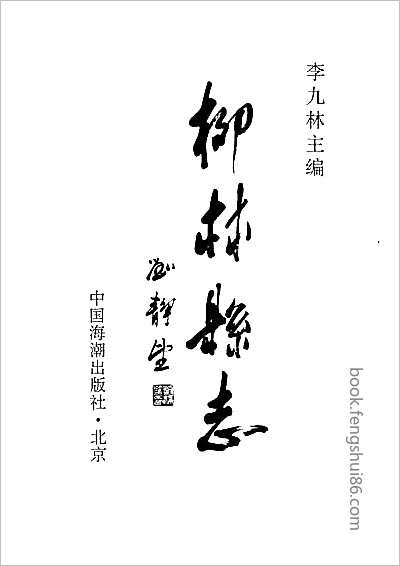 李九林主编
柳林縣志
刘静堂
中国海潮出版社·北京
book.fengshui86.com